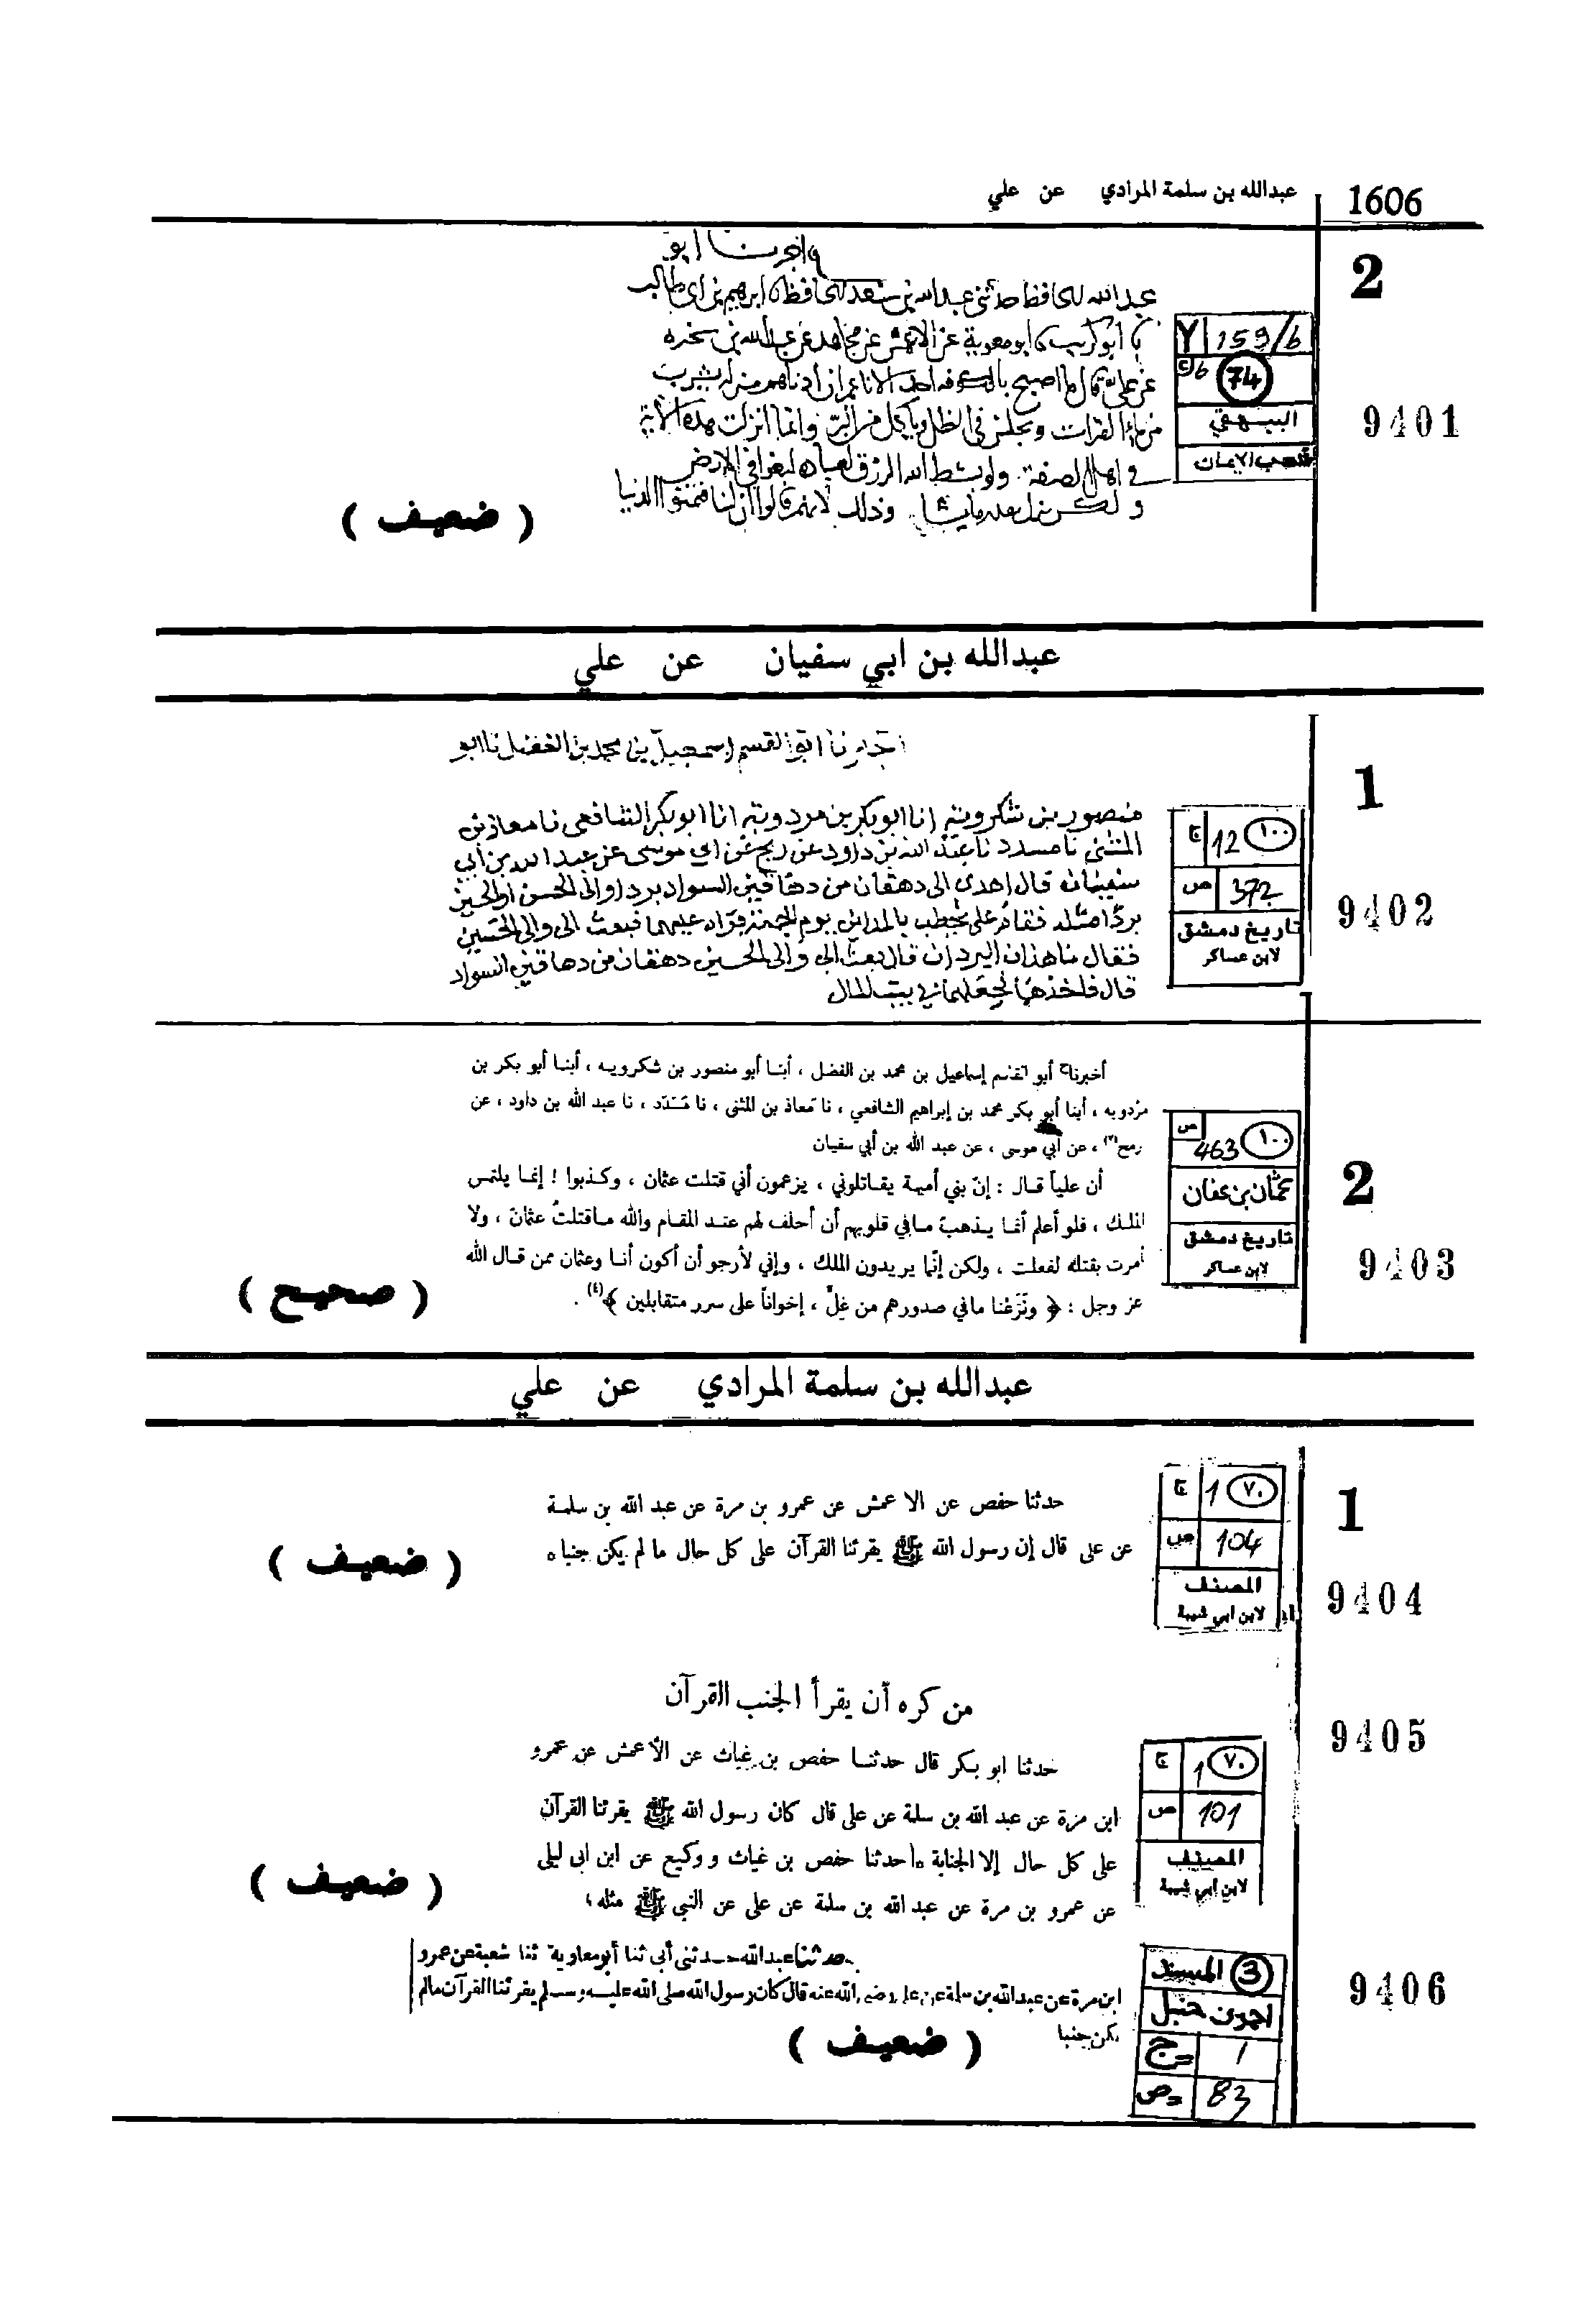 1606
عبدالله بن سلمة المرادي عن علي
واخبرنا ابو
عبد الله الحافظ حدثني عبد الله بن سعد الحافظ ابراهيم بن ابي طالب
ابو كريب ابو معوية عن الاعمش عن مجاهد عن عبد الله بن سخبره
عن علي قال ما اصبح بالكوفه احد الا ناعم ان أدناهم منزله يشرب
من ماء الفرات ويجلس في الظل وياكل من البر وانما انزلت هذه الآية
في اهل الصفة ولو بسط الله الرزق لعباده لبغوا في الارض
ولكن ينزل بقدر ما يشا وذلك لانهم قالوا ان لنا فتمنوا الدنيا
( ضعيف )
2
9401
159/b
b
74
البيهقي
شعب الايمان
عبدالله بن ابي سفيان عن علي
اخبرنا ابو القسم اسمعيل بن محمد بن الفضل نا ابو
منصور بن شكرويه انا ابو بكر بن مردويه انا ابو بكر الشافعي نا معاذ بن
المثنى نا مسدد نا عبد الله بن داود عن ربح عن ابي موسى عن عبد الله بن أبي
سفيان قال اهدى الى دهقان من دهاقين السواد بردا والى الحسن او الحسين
بردا مثله فقام على يخطب بالمداين يوم الجمعة فرآه عليهما فبعث الى والى الحسين
فقال ما هذان البردان قال بعث الي والى الحسين دهقان من دهاقين السواد
قال فاخذهما فجعلهما في بيت المال
1
9402
ج 12 ١٠٠
ص 372
تاريخ دمشق
لابن عساكر
أخبرنا أبو القاسم إسماعيل بن محمد بن الفضل ، أبنا أبو منصور بن شكرويه ، أبنا أبو بكر بن
مردويه ، أبنا أبو بكر محمد بن إبراهيم الشافعي ، نا معاذ بن المثنى ، نا مسدد ، نا عبد الله بن داود ، عن
رمح ، عن أبي موسى ، عن عبد الله بن أبي سفيان
أن علياً قال : إنّ بني أمية يقاتلوني ، يزعمون أني قتلت عثمان ، وكذبوا ! إنما يلتمس
الملك ، فلو أعلم أنما يذهب مافي قلوبهم أن أحلف لهم عند المقام والله ماقتلتُ عثمان ، ولا
أمرت بقتله لفعلت ، ولكن إنّما يريدون الملك ، وإني لأرجو أن أكون أنا وعثمان ممن قال الله
عز وجل : ﴿ ونَزَعْنا مافي صدورهم من غِلٍّ ، إخواناً على سرر متقابلين ﴾(٤) .
( صحيح )
2
9403
ص 463 ١٠٠
عثمان بن عفان
تاريخ دمشق
لابن عساكر
عبدالله بن سلمة المرادي عن علي
حدثنا حفص عن الاعمش عن عمرو بن مرة عن عبد الله بن سلمة
عن على قال إن رسول الله ﷺ يقرئنا القرآن على كل حال ما لم يكن جنبا ه
( ضعيف )
1
9404
ج 1 ٧٠
ص 104
المصنف
لابن ابي شيبة
من كره أن يقرأ الجنب القرآن
حدثنا ابو بكر قال حدثنا حفص بن غياث عن الأعمش عن عمرو
ابن مرة عن عبد الله بن سلمة عن على قال كان رسول الله ﷺ يقرئنا القرآن
على كل حال إلا الجنابة ه حدثنا حفص بن غياث و وكيع عن ابن ابى ليلى
عن عمرو بن مرة عن عبد الله بن سلمة عن على عن النبي ﷺ مثله ؛
( ضعيف )
9405
ج 1 ٧٠
ص 101
المصنف
لابن ابي شيبة
حدثنا عبدالله حدثنى أبى ثنا أبو معاوية ثنا شعبة عن عمرو
ابن مرة عن عبدالله بن سلمة عن على رضى الله عنه قال كان رسول الله صلى الله عليه وسلم يقرئنا القرآن مالم
يكن جنبا
( ضعيف )
9406
3 المسند
احمد بن حنبل
ج= 1
ص= 83